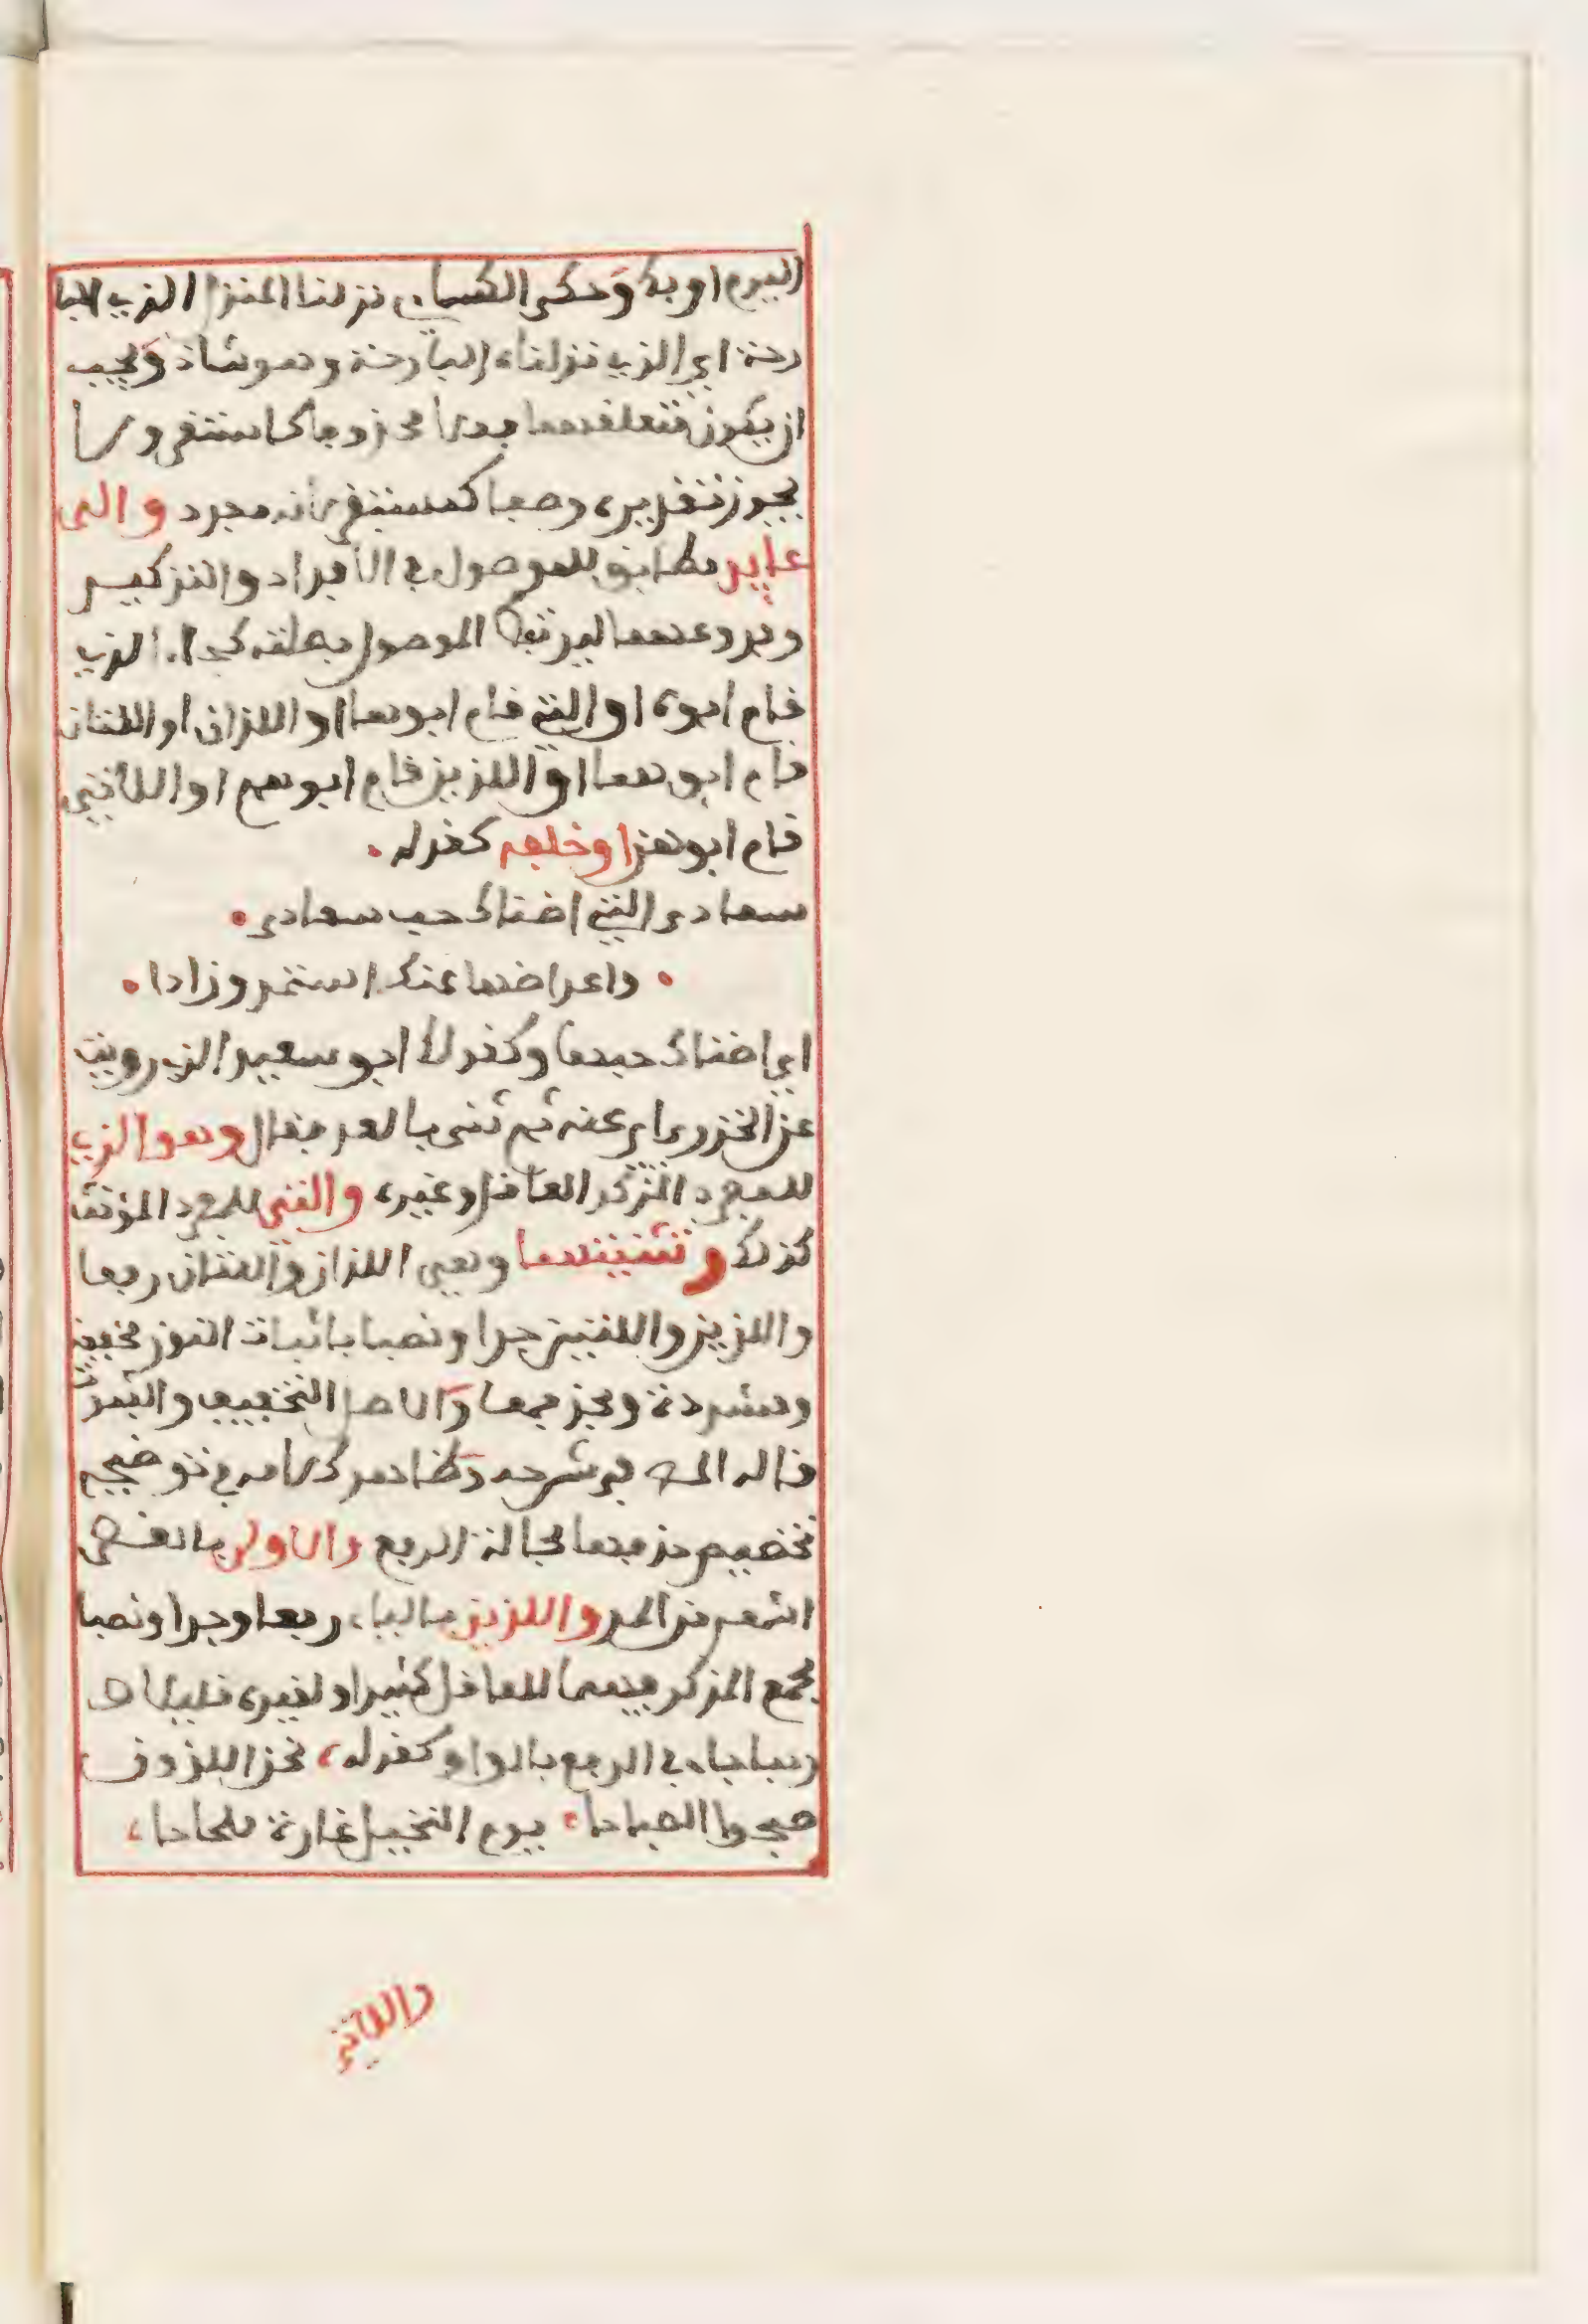 اليوم او بك وحكى الكسائي نزلنا المنزل الذي البا
رحة اي الذي نزلناه البارحة وهو شاذ ويجب
ان يكون متعلقهما فعلا محذوفا كاستقر ولا
يجوز تقديره وصفا كمستقر لانه مفرد والى
عايد مطابق للموصول في الافراد والتذكير
وفروعهما ليرتبط الموصول بصلته كجاء الذي
قام ابوه او التي قام ابوها او اللذان او اللتان
قام ابوهما او الذين قام ابوهم او اللاتي
قام ابوهن او خلفه كقوله .
سعاد التي اضناك حب سعادى .
. واعراضها عنك استمر وزادا .
اي اضناك حبها وكقولك ابو سعيد الذي رويت
عن الخدري اي عنه ثم ثنى بالعد فقال وهو الذي
للمفرد المذكر العاقل وغيره والتي للمفرد المؤنث
كذلك وتثنيتهما وهي اللذان واللتان رفعا
واللذين واللتين جرا ونصبا باثبات النون مخففة
ومشددة وبحذفها والاصل التخفيف والثبوت
قاله المص في شرحه وظاهر كلامه في توضيحه
تخصيص حذفها بحالة الرفع والاولى بالقصر
اشهر من المد والذين بالياء رفعا وجرا ونصبا
لجمع المذكر فيهما للعاقل كثيرا ولغيره قليلا و
ربما جاء في الرفع بالواو كقوله، نحن اللذون
صبحوا الصباحا . يوم النخيل غارة ملحاحا،
واللاتي